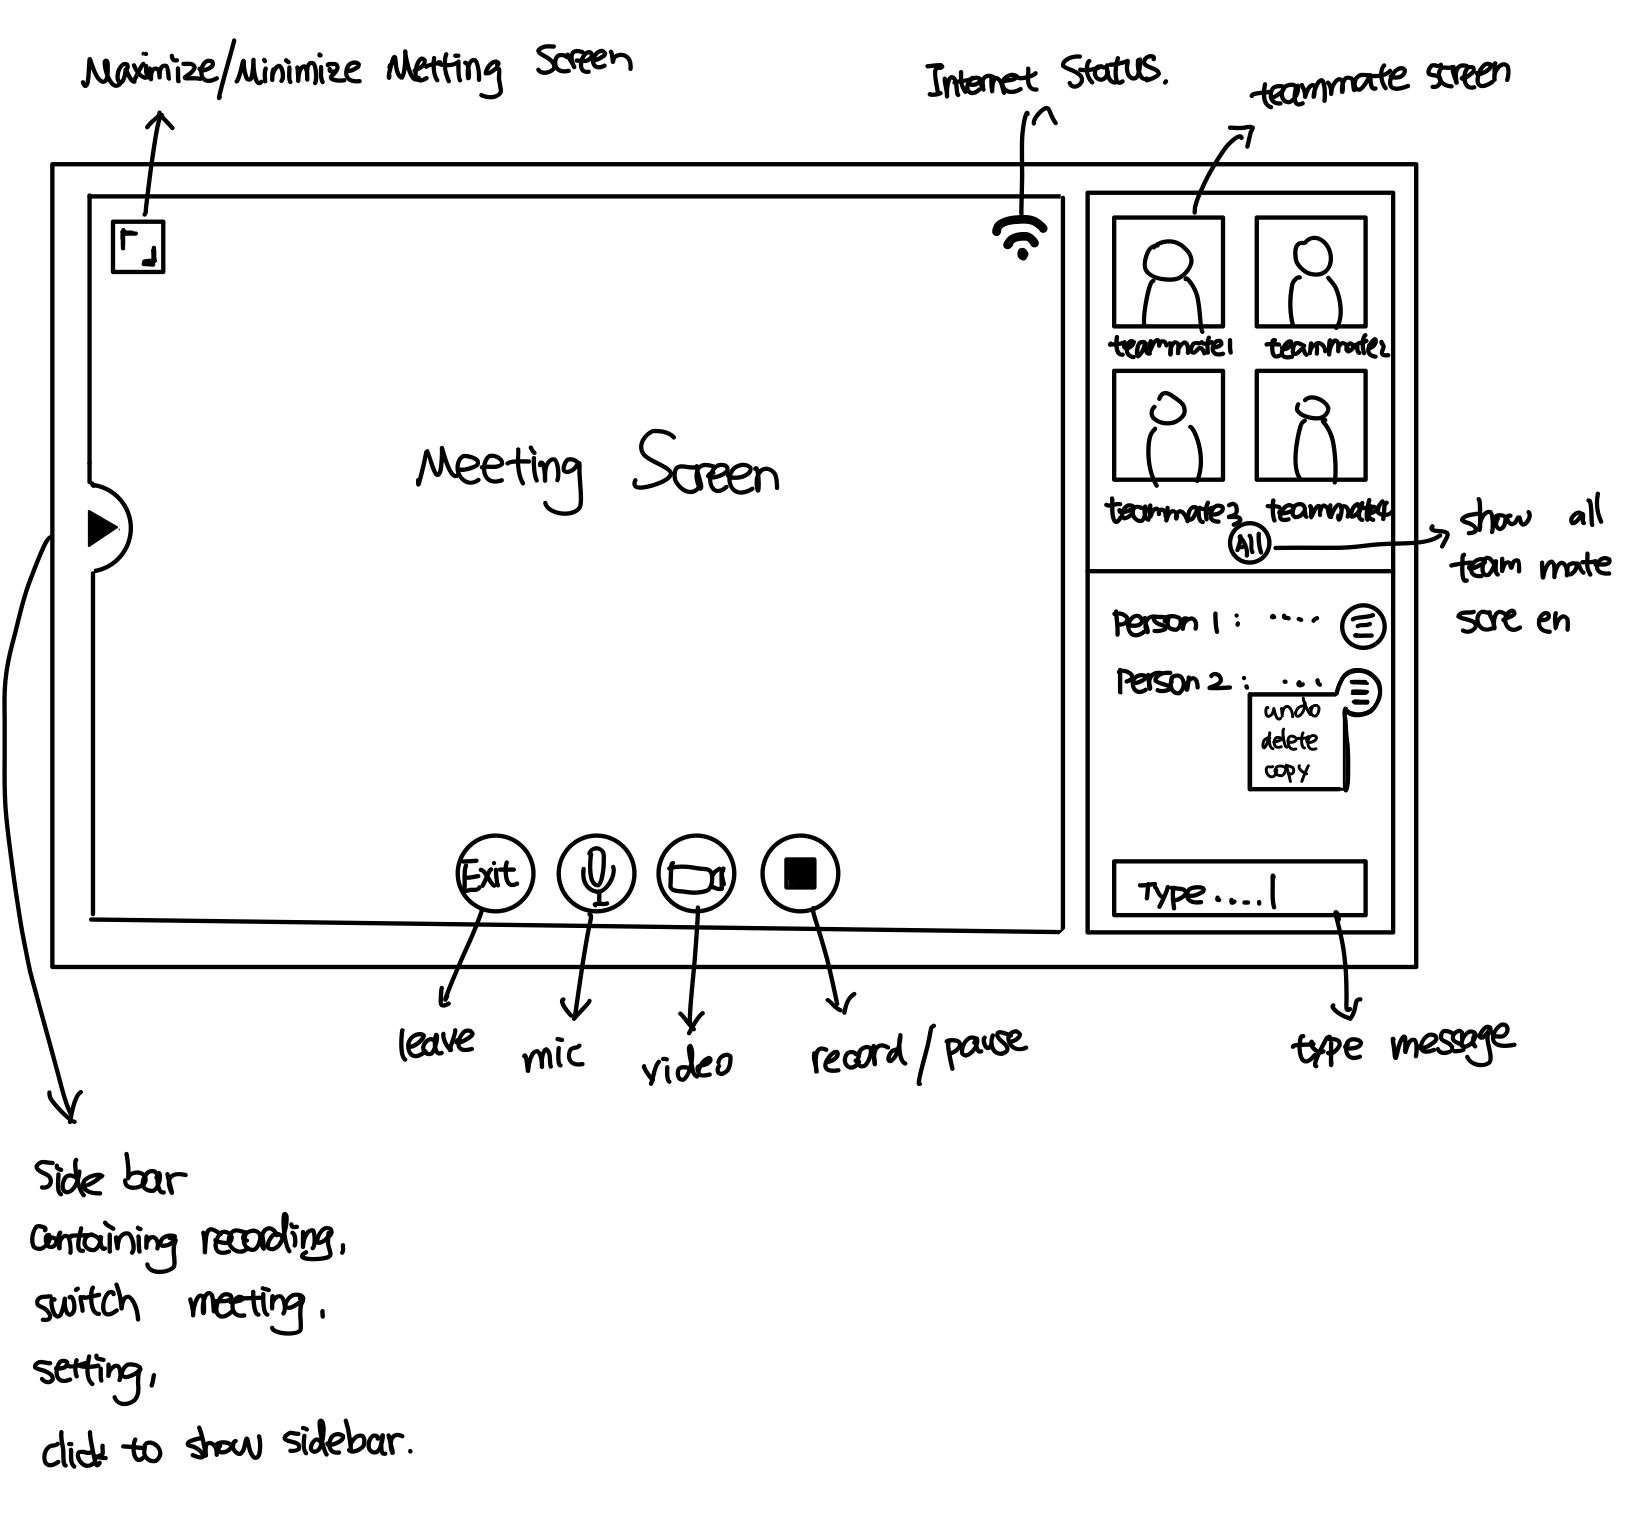 Maximize/Minimize Metting Screen
Internet Status.
teammate screen
teammate1
teammate2
Meeting Screen
teammate3
teammate4
All
show all
team mate
scre en
Person 1: ....
Person 2: ....
undo
delete
copy
Exit
Type....|
leave
mic
video
record/pause
type message
side bar
containing recording,
switch meeting,
setting,
click to show sidebar.